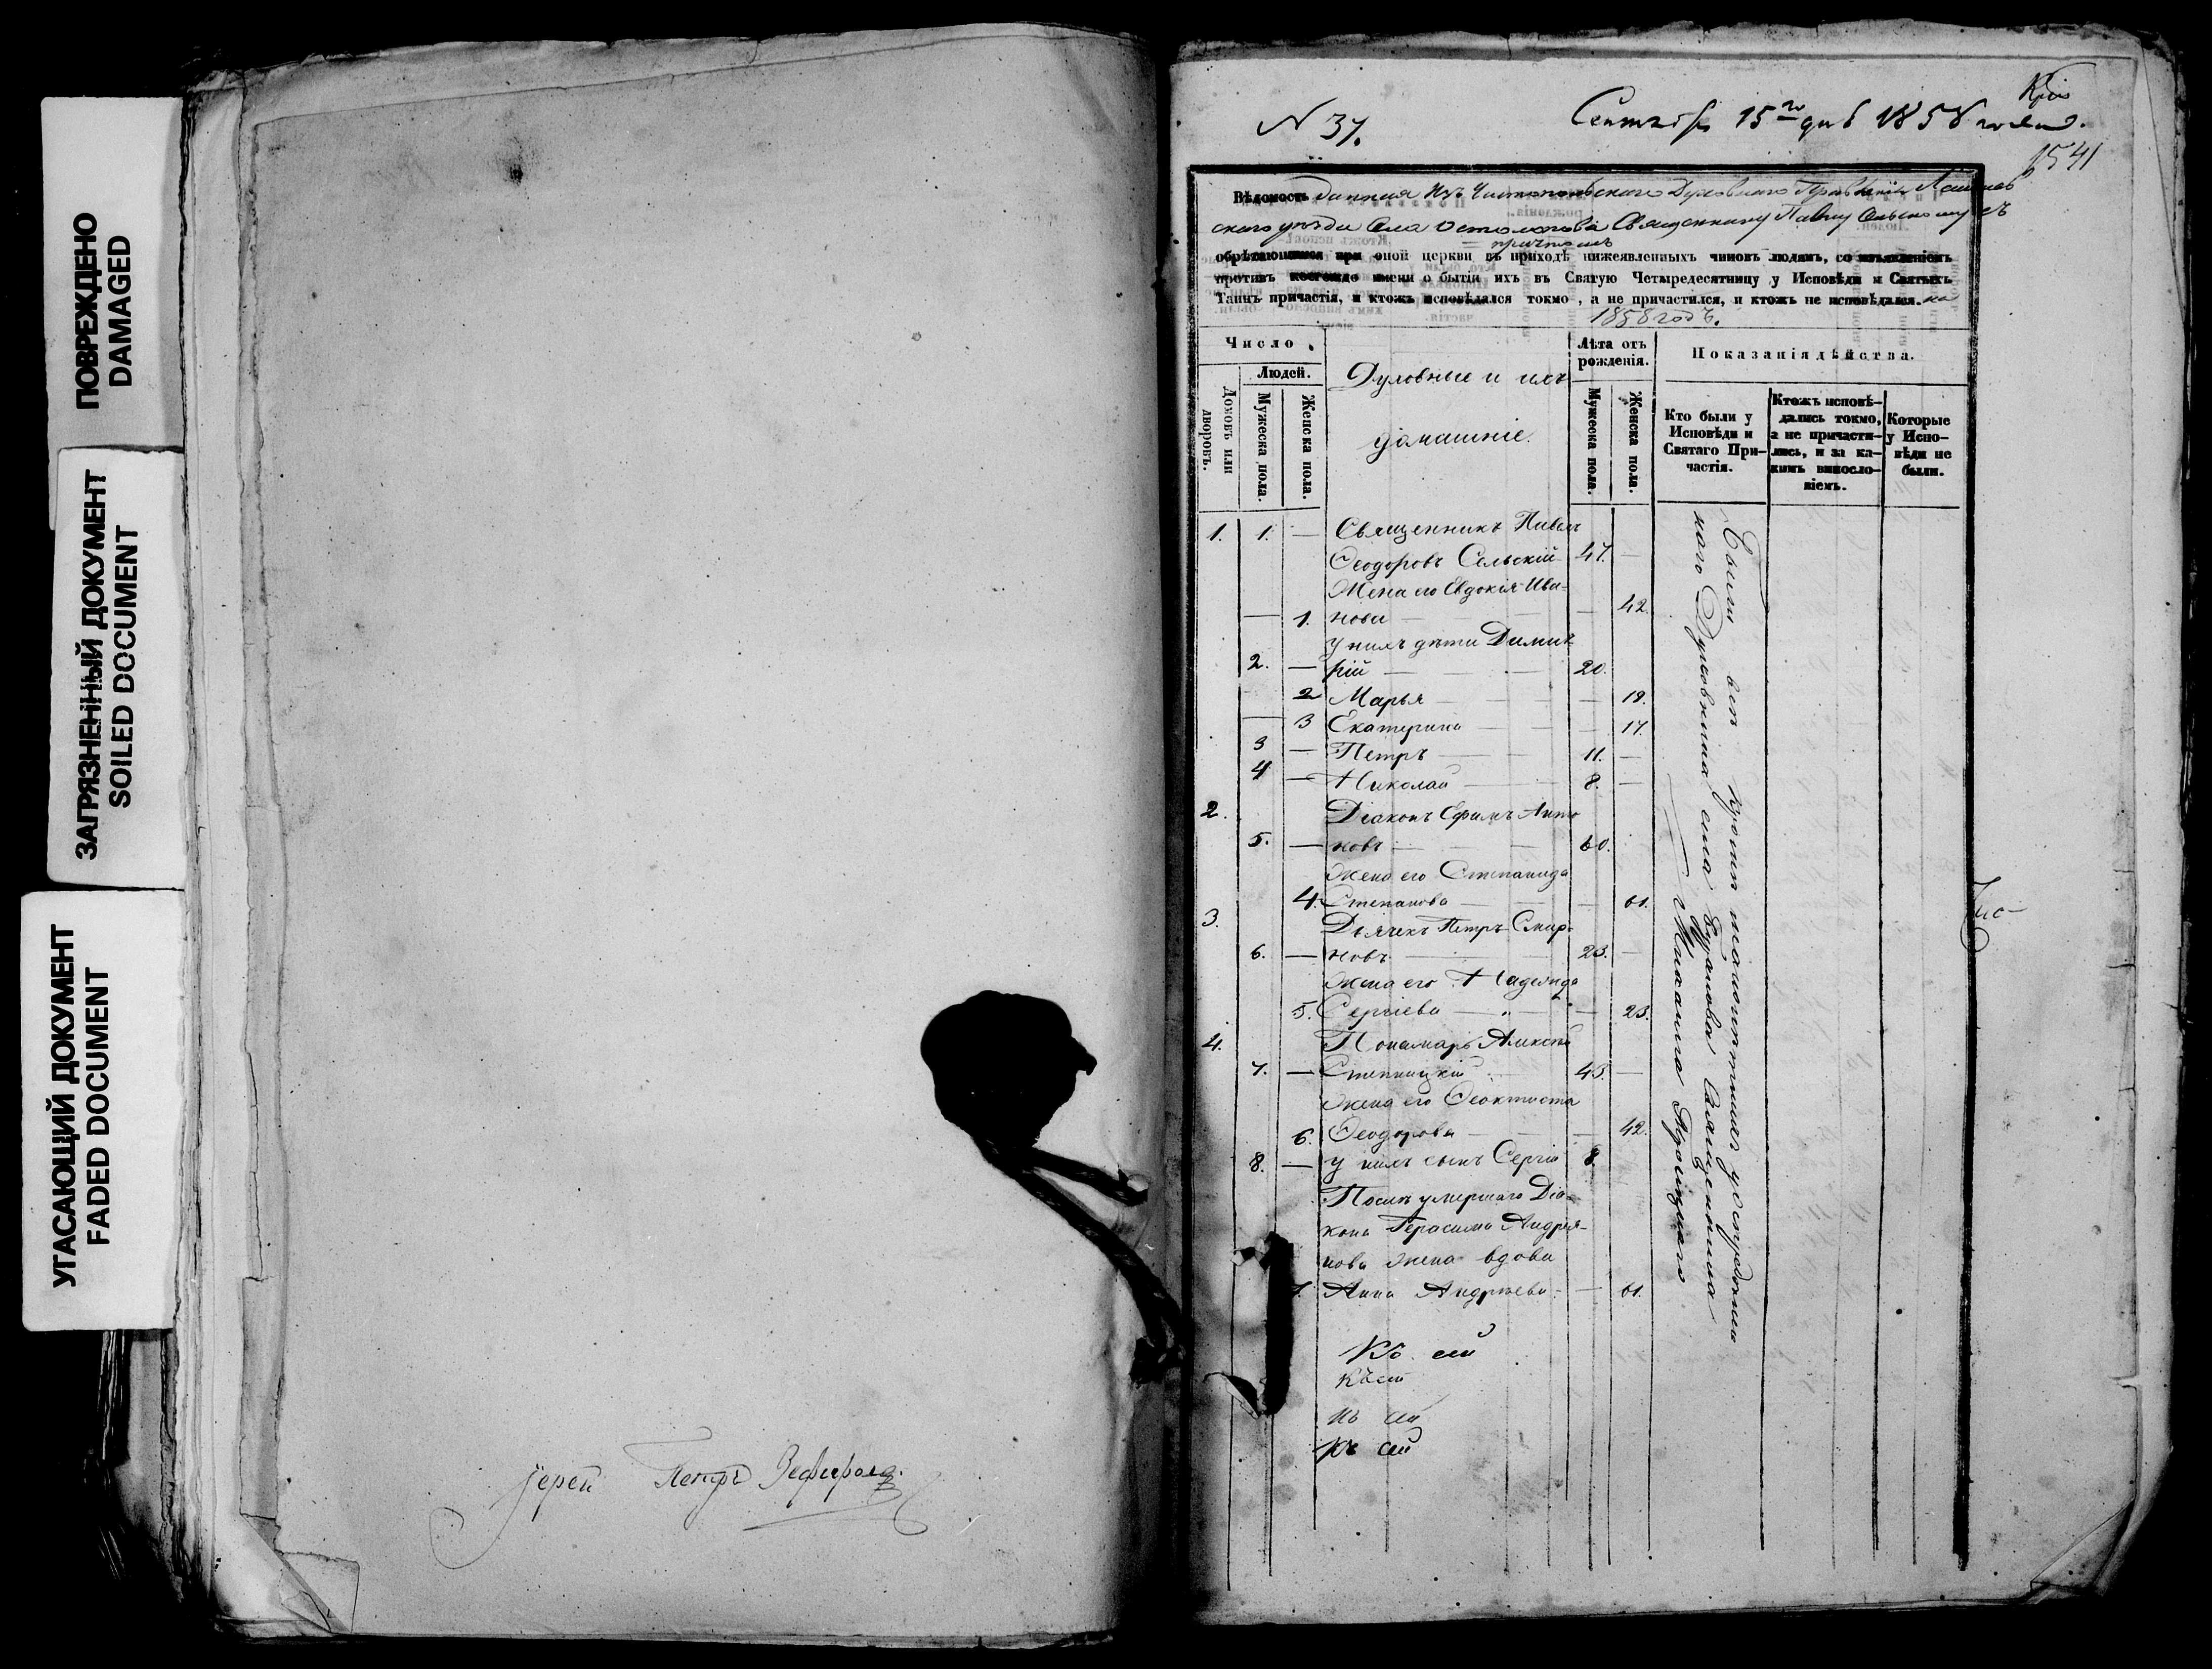 ПОВРЕЖДЕНО
DAMAGED
ЗАГРЯЗНЕННЫЙ ДОКУМЕНТ
SOILED DOCUMENT
УГАСАЮЩИЙ ДОКУМЕНТ
FADED DOCUMENT
Іерей Петръ Зефировъ
N 37. 1858
1541
Вѣдомость данная Изъ Чистопольскаго Духовнаго Правленія Лаишев
скаго уѣзда Села Остолопова Священнику Павлу Сельскому съ
причтомъ
обрѣтающимся при оной церкви въ приходѣ нижеявленныхъ чиновъ людямъ, со изъявленіемъ
противъ коегождо имени о бытіи ихъ въ Святую Четыредесятницу у Исповѣди и Святыхъ
Таинъ причастія, и ктожъ исповѣдался токмо, а не причастился, и ктожъ не исповѣдался. на
1858 годъ.
Число
Людей.
Домовъ или дворовъ.
Мужеска пола.
Женска пола.
Духовные и ихъ
домашніе.
Лѣта отъ рожденія.
Мужеска пола.
Женска пола.
Показанія дѣйства.
Кто были у Исповѣди и Святаго Причастія.
Ктожъ исповѣдались токмо, а не причастились, и за какимъ винословіемъ.
Которые у Исповѣди не были.
1. 1. — Священникъ Павелъ
Ѳеодоровъ Сельскій 47. —
Жена его Евдокія Ива-
— 1. нова — 42.
У нихъ дѣти Димит
2. — рій 20.
2 Марья — 19.
— 3 Екатерина — 17.
3 — Петръ 11. —
4 — Николай 8. —
2. Діаконъ Ефимъ Анто
5. — новъ 60.
Жена его Степанида
4. Степанова — 61.
3. Дьячекъ Петръ Смир-
6. — новъ 23. —
Жена его Надежда
5. Сергіева — 23.
4. Пономарь Алексѣй
7. — 43. —
Жена его Ѳеоктиста
6. Ѳеодорова — 42.
8. — У нихъ сынъ Сергій 8.
Послѣ умершаго Діа-
кона Герасима Андрея-
нова жена вдова
Анна Андреева — 61.
Къ сей
Къ сей
Къ сей
Къ сей